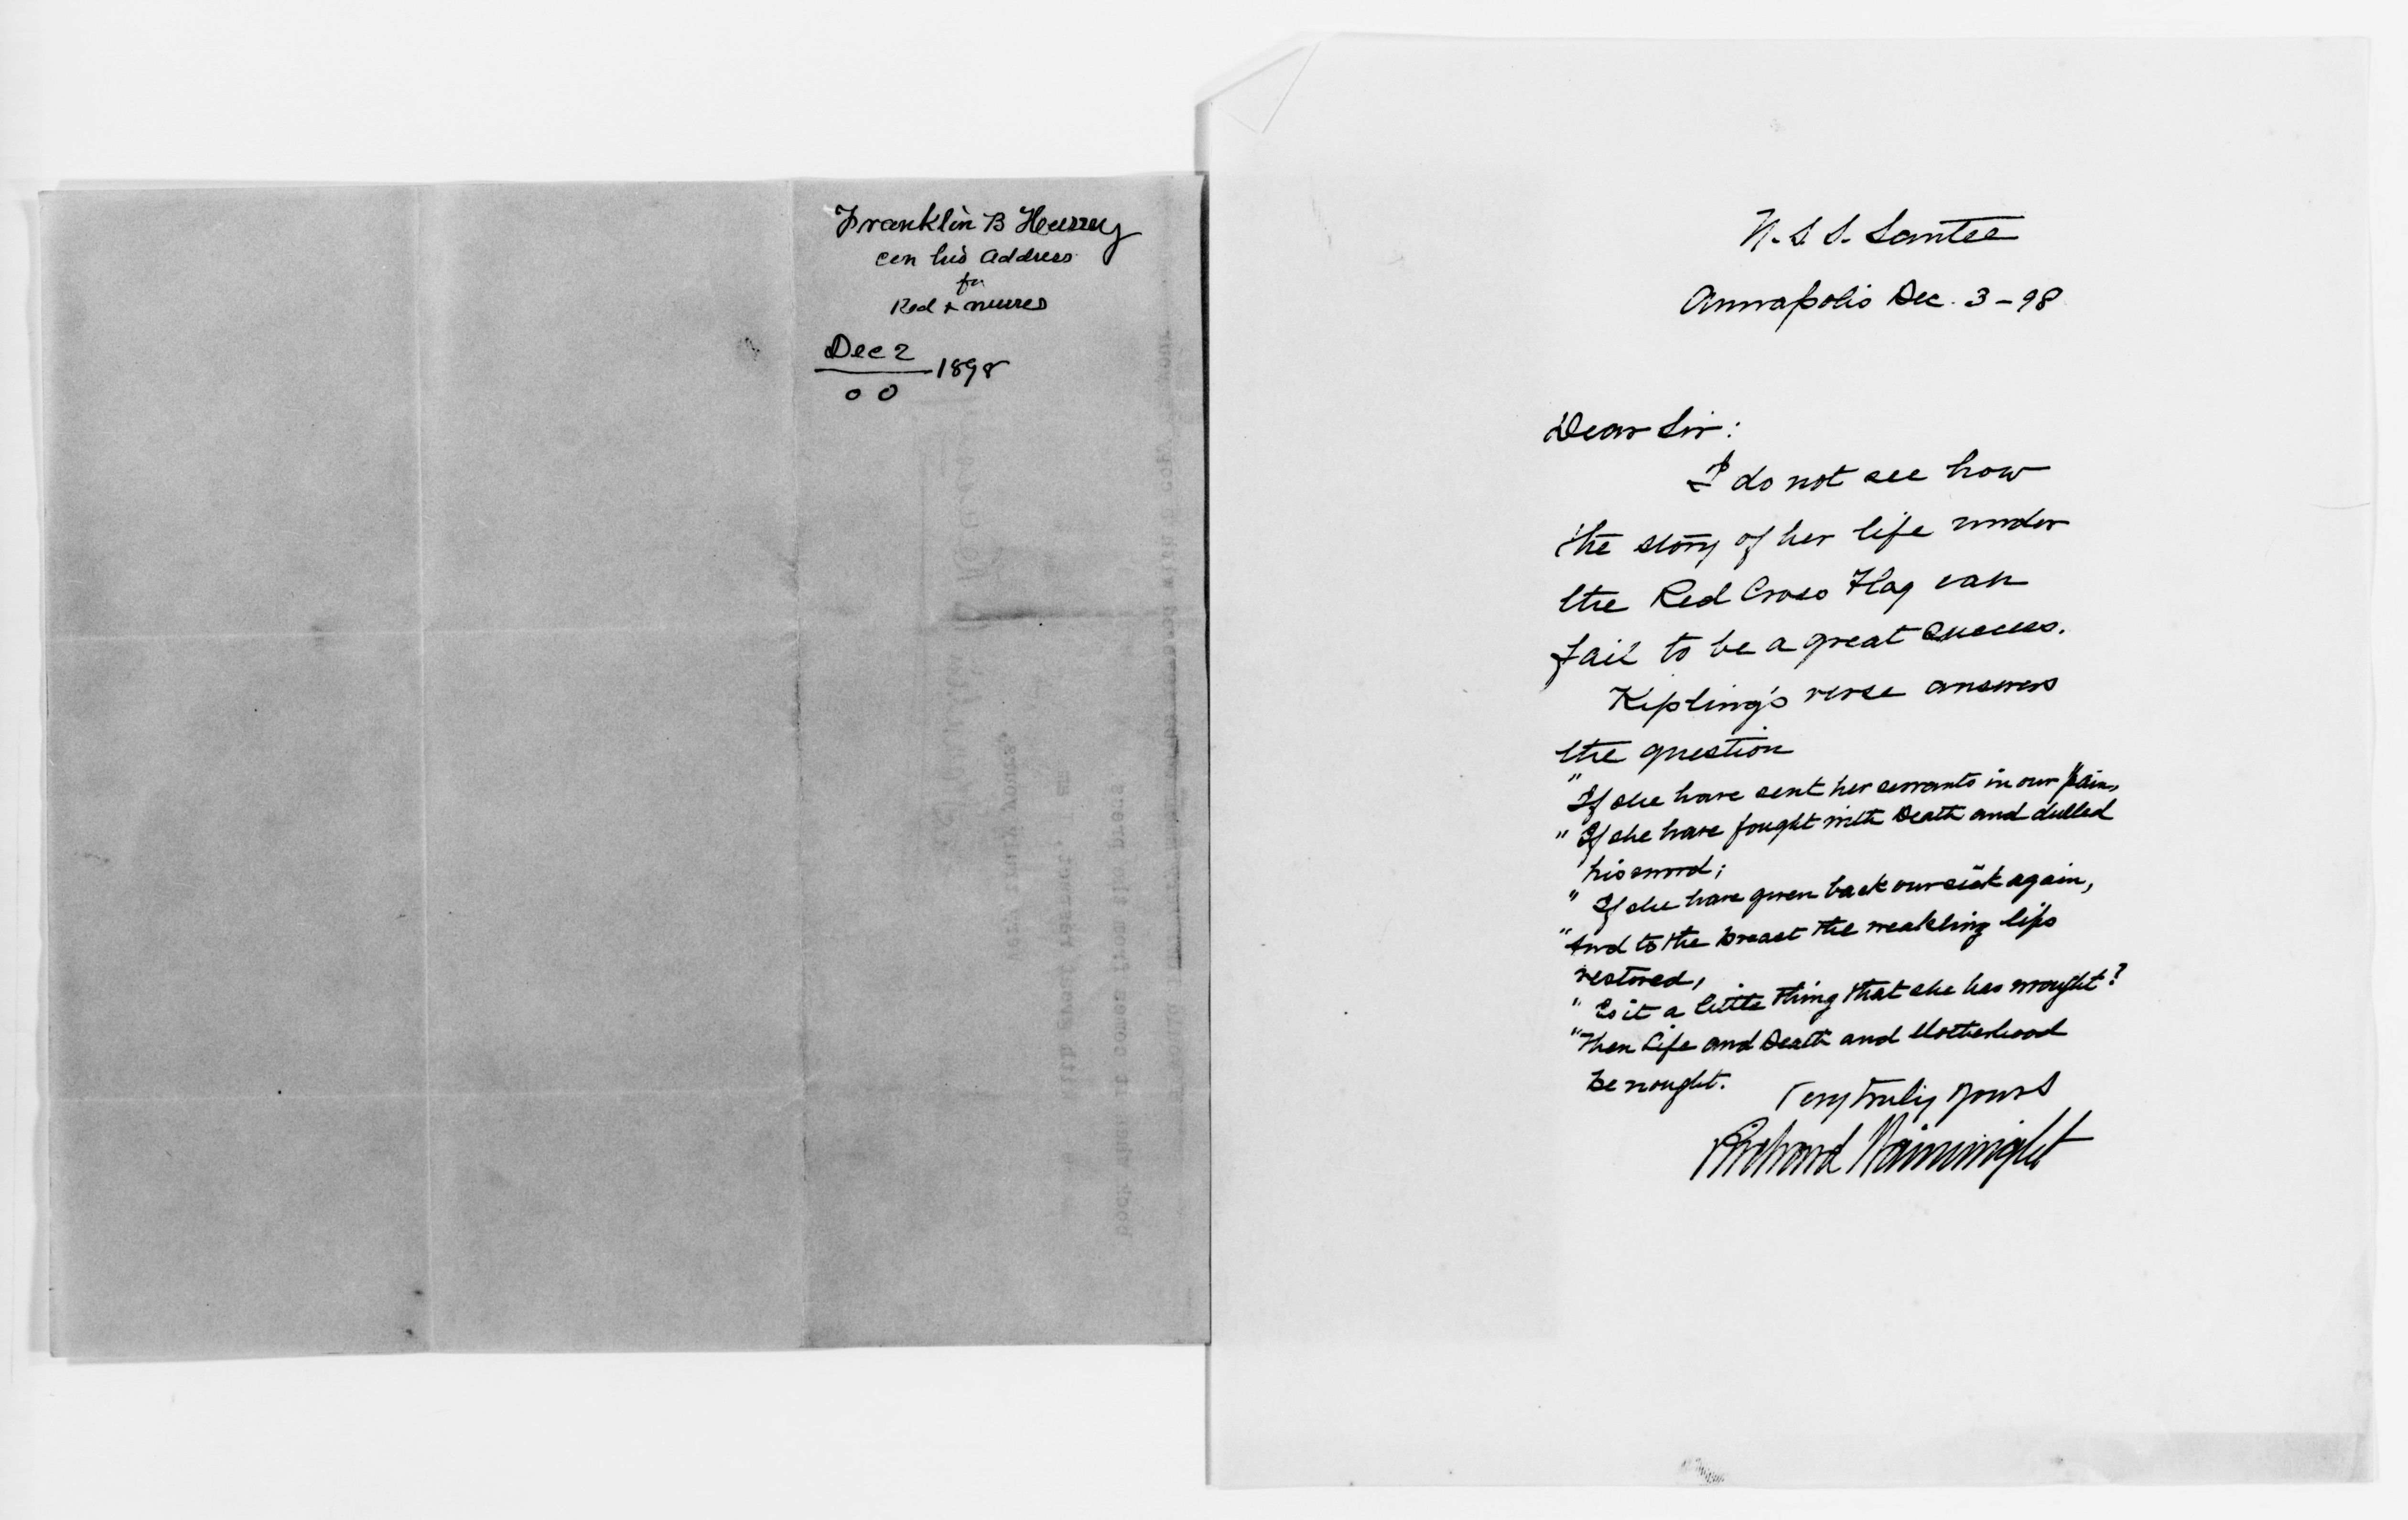 Franklin B Hussey
cen his address
for
Red + nurses
Dec 2
1898
o o
U. S. S. Santee
Annapolis Dec. 3 - 98
Dear Sir:
I do not see how
the story of her life under
the Red Cross Flag can
fail to be a great success.
Kipling's verse answers
the question
"If she have sent her servants in our pain,
"If she have fought with Death and dulled
his sword;
"If she have given back our sick again,
"And to the breast the weakling lips
restored,
"Is it a little thing that she has wrought?
"Then Life and Death and Motherhood
be nought.
Very truly yours
Richard Wainwright